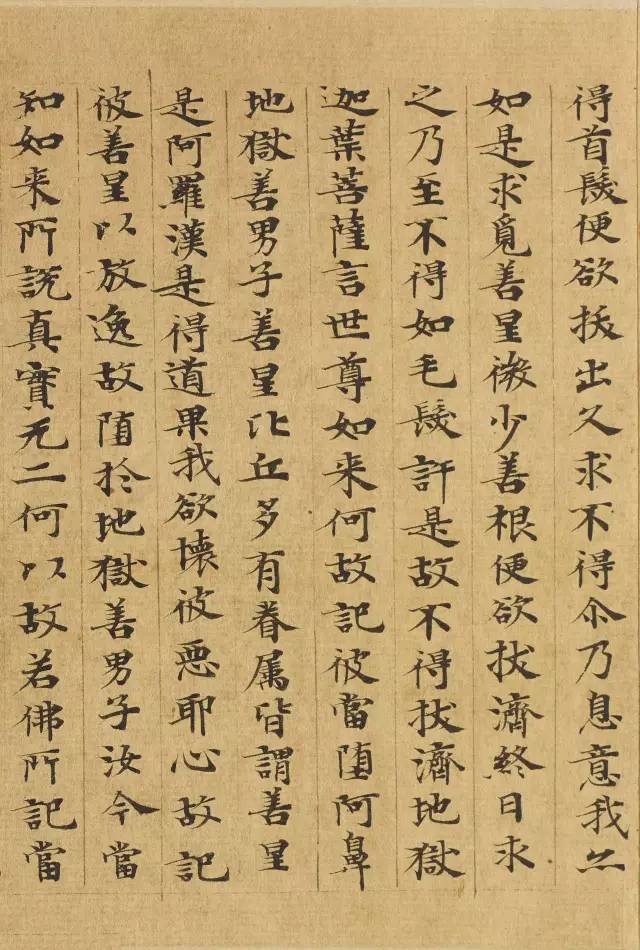 得首髮便欲拔出久求不得尒乃息意我亦
如是求覓善星微少善根便欲拔濟終日求
之乃至不得如毛髮許是故不得拔濟地獄
迦葉菩薩言世尊如来何故記彼當墮阿鼻
地獄善男子善星比丘多有眷属皆謂善星
是阿羅漢是得道果我欲壞彼惡耶心故記
彼善星以放逸故堕於地獄善男子汝今當
知如来所說真實无二何以故若佛所記當